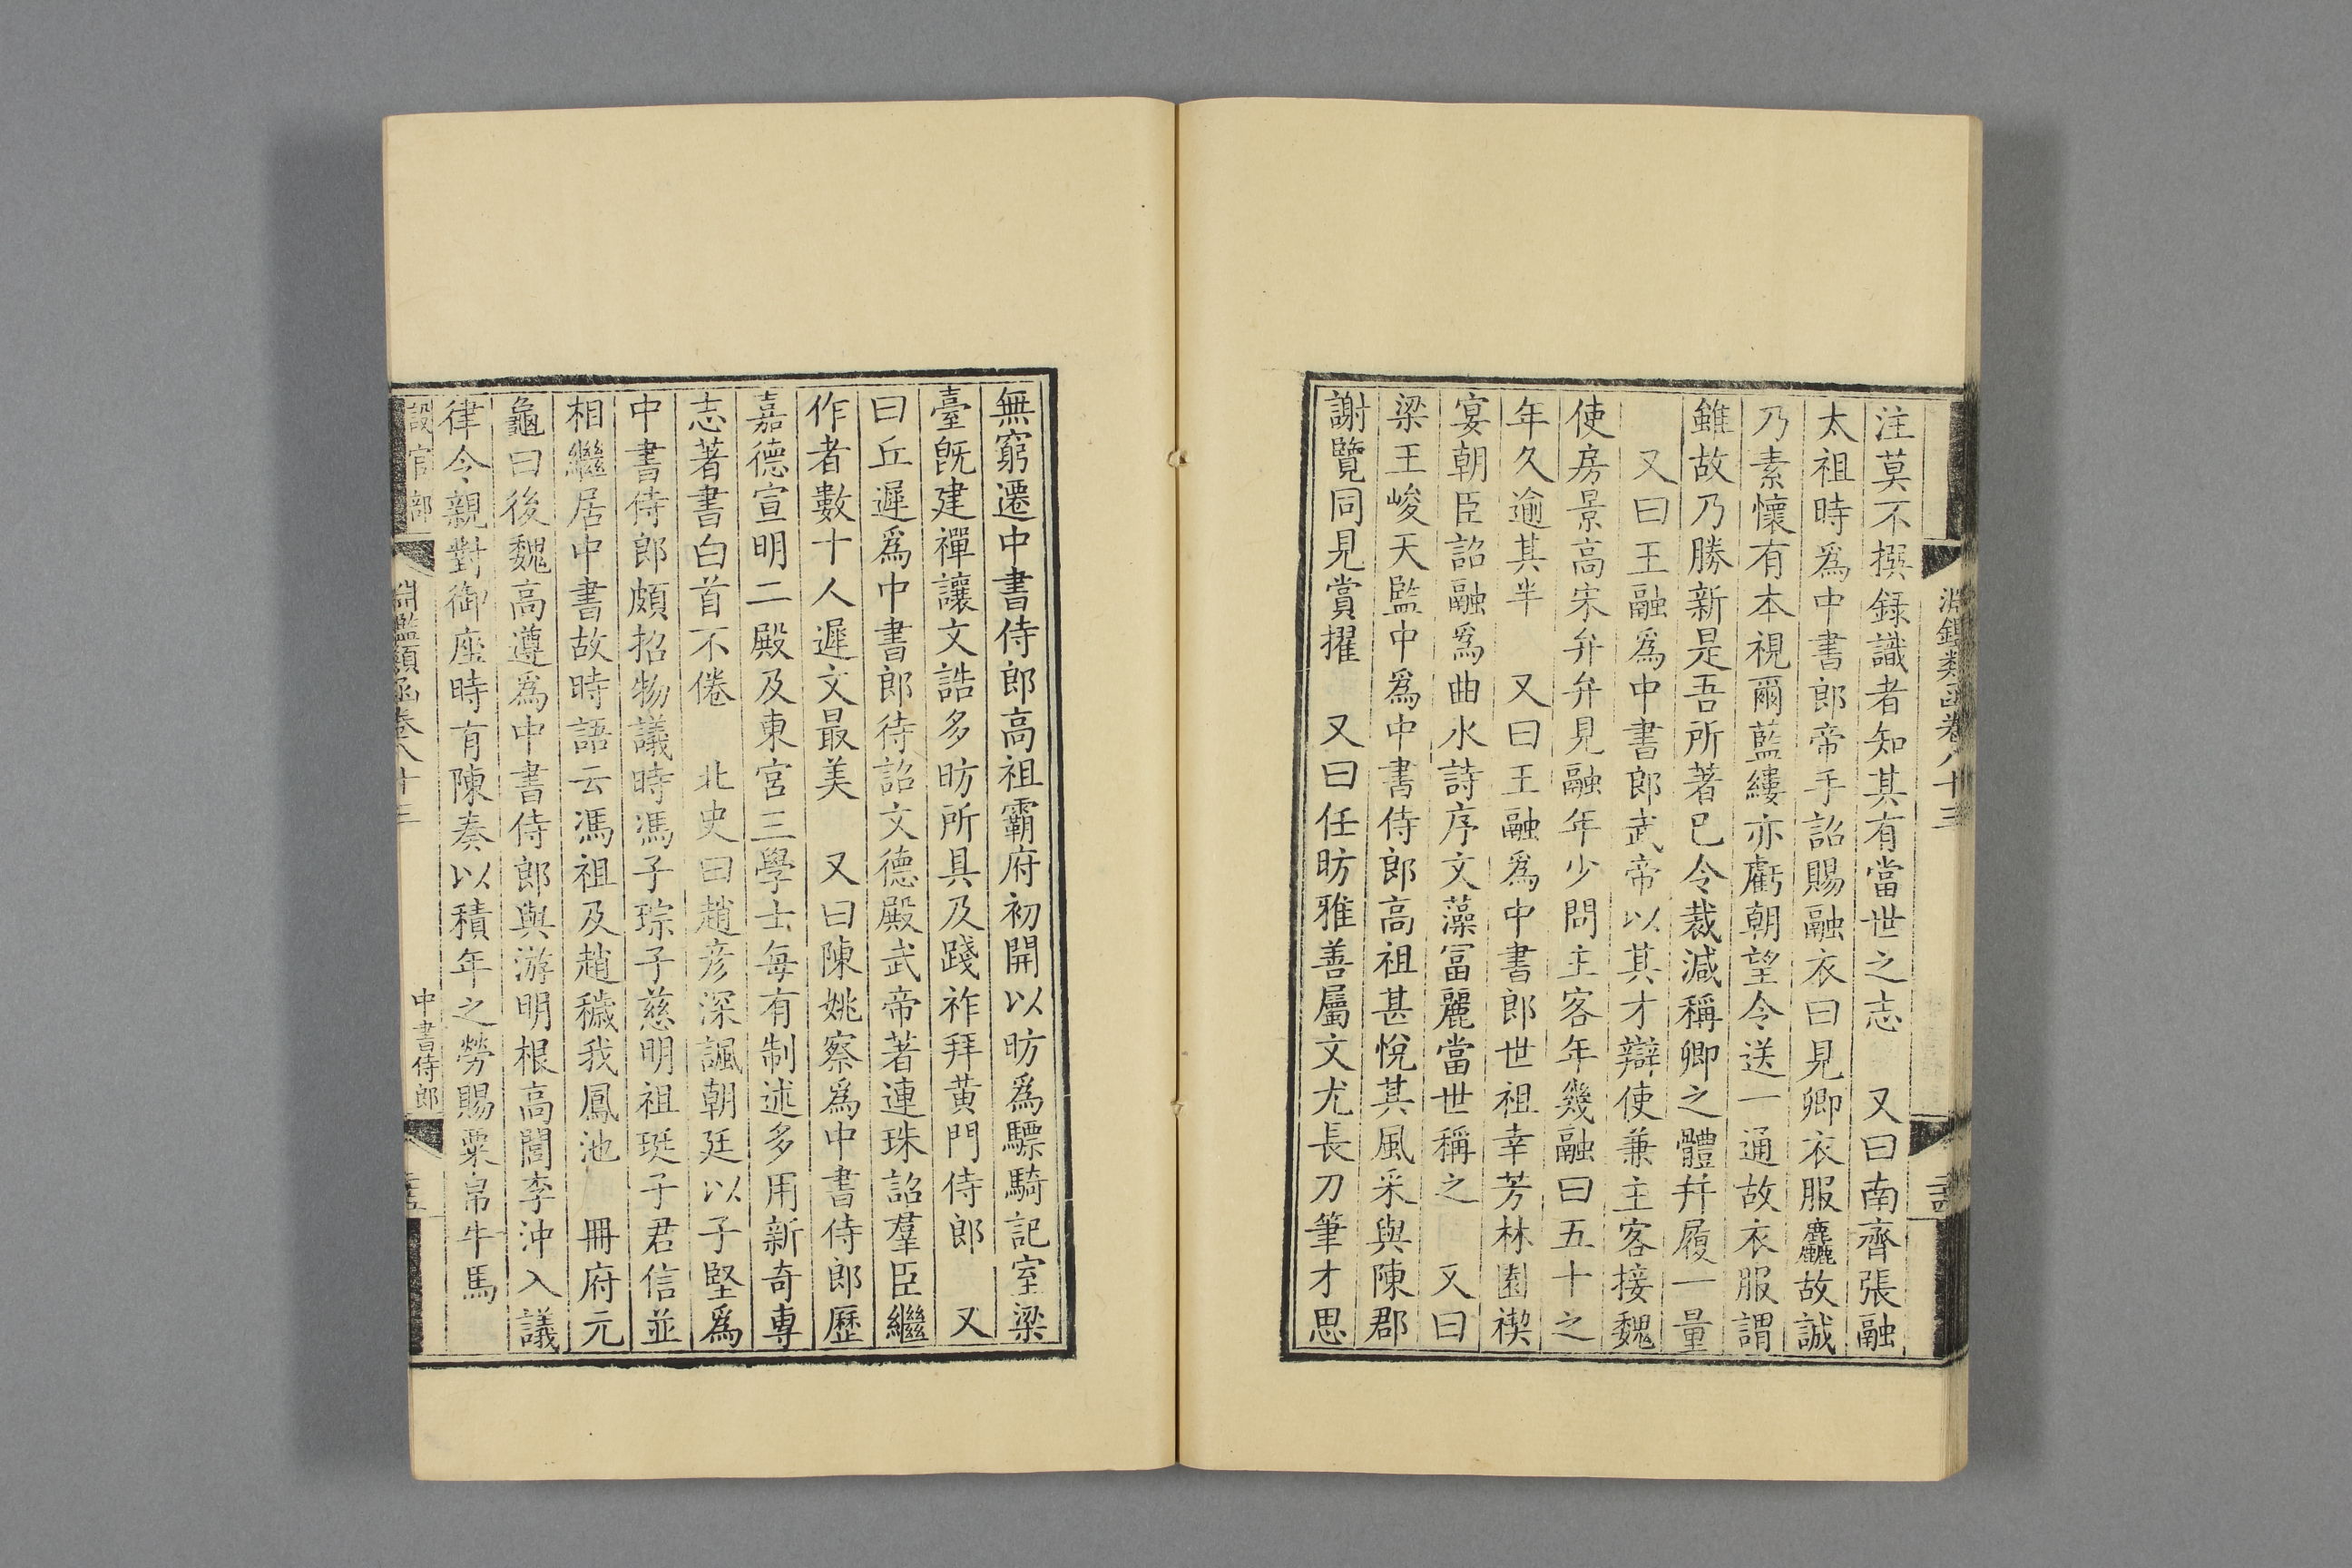 淵鑑類函卷八十三
注莫不撰録識者知其有當世之志　又曰南齊張融
太祖時爲中書郎帝手詔賜融衣曰見卿衣服麤故誠
乃素懷有本視爾藍縷亦虧朝望令送一通故衣服謂
雖故乃勝新是吾所著已令裁減稱卿之體幷履一量
又曰王融爲中書郎武帝以其才辯使兼主客接魏
使房景高宋弁弁見融年少問主客年幾融曰五十之
年久逾其半　又曰王融爲中書郎世祖幸芳林園禊
宴朝臣詔融爲曲水詩序文藻冨麗當世稱之　又曰
梁王峻天監中爲中書侍郎高祖甚悅其風采與陳郡
謝覽同見賞擢　又曰任昉雅善屬文尤長刀筆才思
無窮遷中書侍郎高祖霸府初開以昉爲驃騎記室梁
臺旣建禪讓文誥多昉所具及踐祚拜黄門侍郎　又
曰丘遲爲中書郎待詔文德殿武帝著連珠詔羣臣繼
作者數十人遲文最美　又曰陳姚察爲中書侍郎歷
嘉德宣明二殿及東宮三學士每有制述多用新奇專
志著書白首不倦　北史曰趙彦深諷朝廷以子堅爲
中書侍郎頗招物議時馮子琮子慈明祖珽子君信並
相繼居中書故時語云馮祖及趙穢我鳳池　冊府元
龜曰後魏高遵爲中書侍郎與游明根高閭李沖入議
律令親對御座時有陳奏以積年之勞賜粟帛牛馬
設官部　淵鑑類函卷八十三　中書侍郎